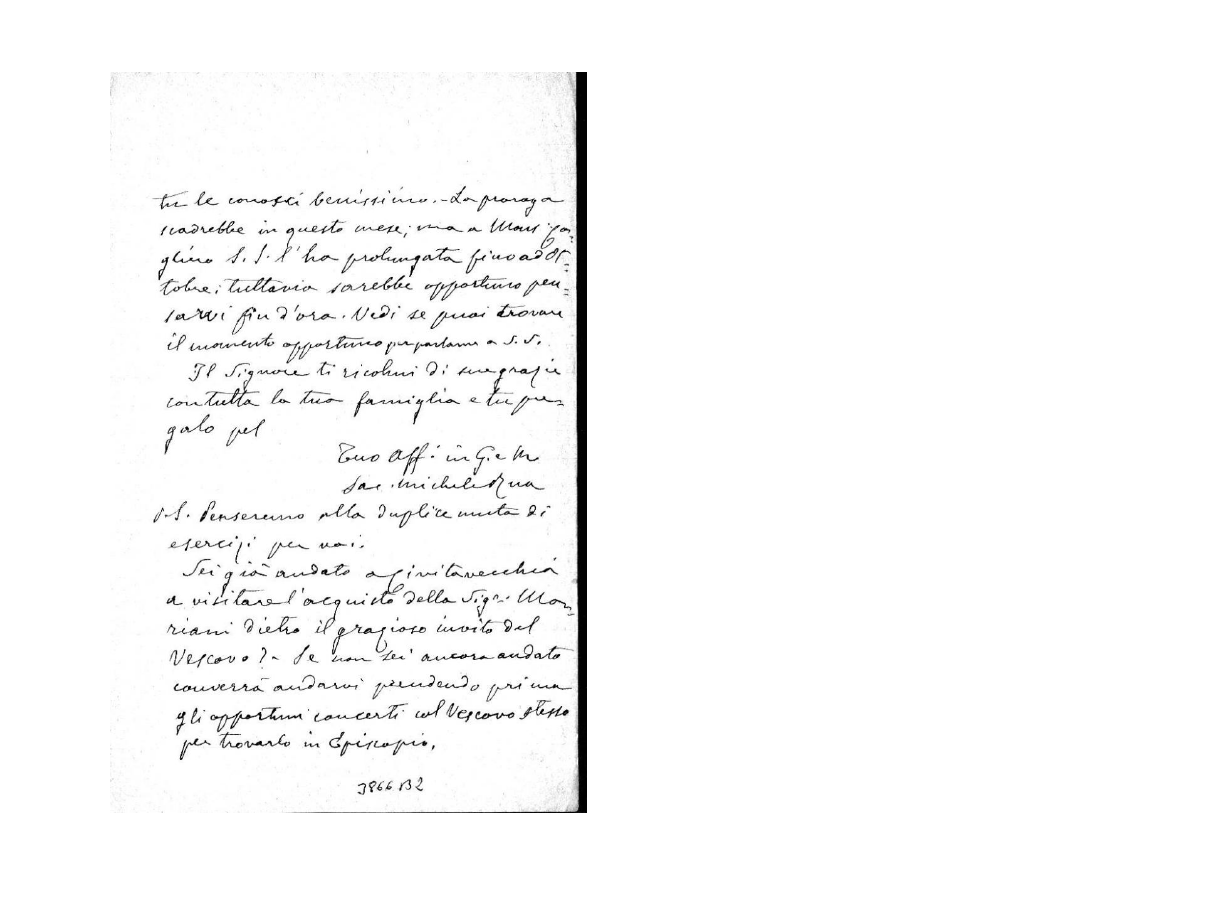 tu le conosci benissimo. - La proroga
scadrebbe in questo mese; ma a Mons. Ca=
gliero S. S. l'ha prolungata fino ad Ot=
tobre; tuttavia sarebbe opportuno pen=
sarvi fin d'ora. Vedi se puoi trovare
il momento opportuno per parlarne a S. S.
Il Signore ti ricolmi di sue grazie
con tutta la tua famiglia e tu pre=
galo pel
Tuo Aff. in G. e M.
Sac. Michele Rua
P.S. Penseremo alla duplice muta di
esercizi per voi.
Sei già andato a Civitavecchia
a visitare l'acquisto della Sigra
riani dietro il grazioso invito del
Vescovo? - Se non sei ancora andato
converrà andarvi prendendo prima
gli opportuni concerti col Vescovo stesso
per trovarlo in Episcopio.
3866 B2